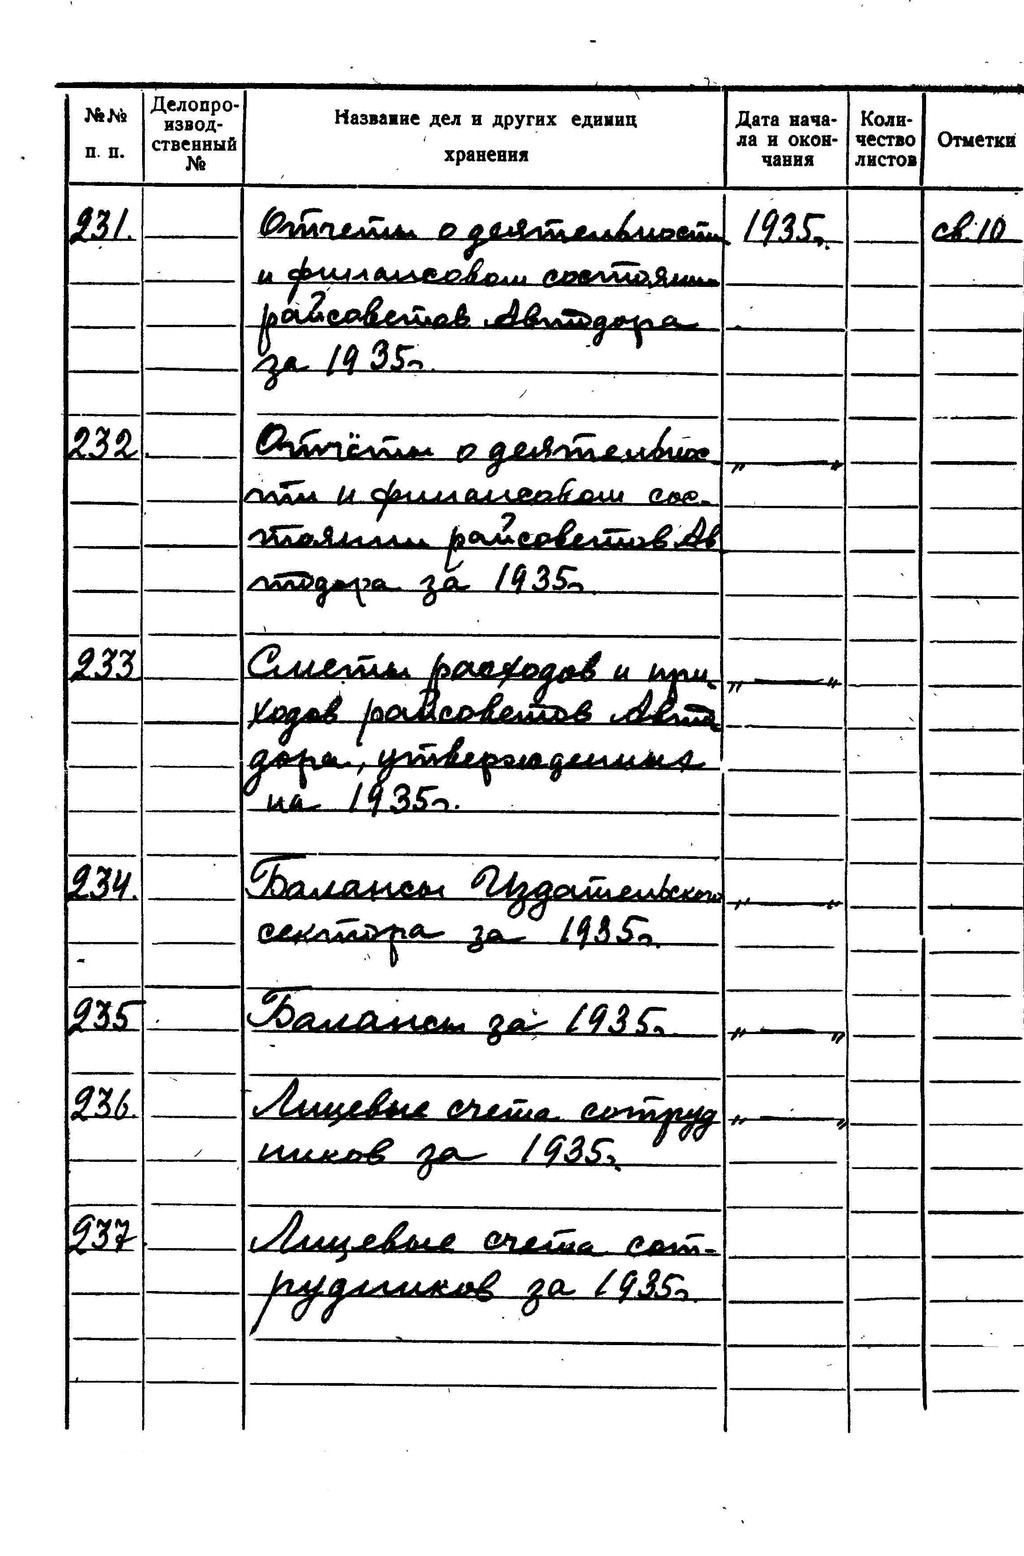 №№ п. п. Делопроизвод-ственный № Название дел и других единиц хранения Дата начала и окончания Количество листов Отметки
231. Отчеты о деятельности 1935г. св. 10
и финансовом состоянии
райсоветов Автодора
за 1935г.
232 Отчёты о деятельнос- „ — "
ти и финансовом сос-
тоянии райсоветов Ав
тодора за 1935г.
233 Сметы расходов и при- „ — "
ходов райсоветов Авто
дора, утвержденных
на 1935г.
234. Балансы Издательского „ — "
сектора за 1935г.
235 Балансы за 1935г. „ — "
236. Лицевые счета сотруд „ — "
ников за 1935г.
237. Лицевые счета сот-
рудников за 1935г.